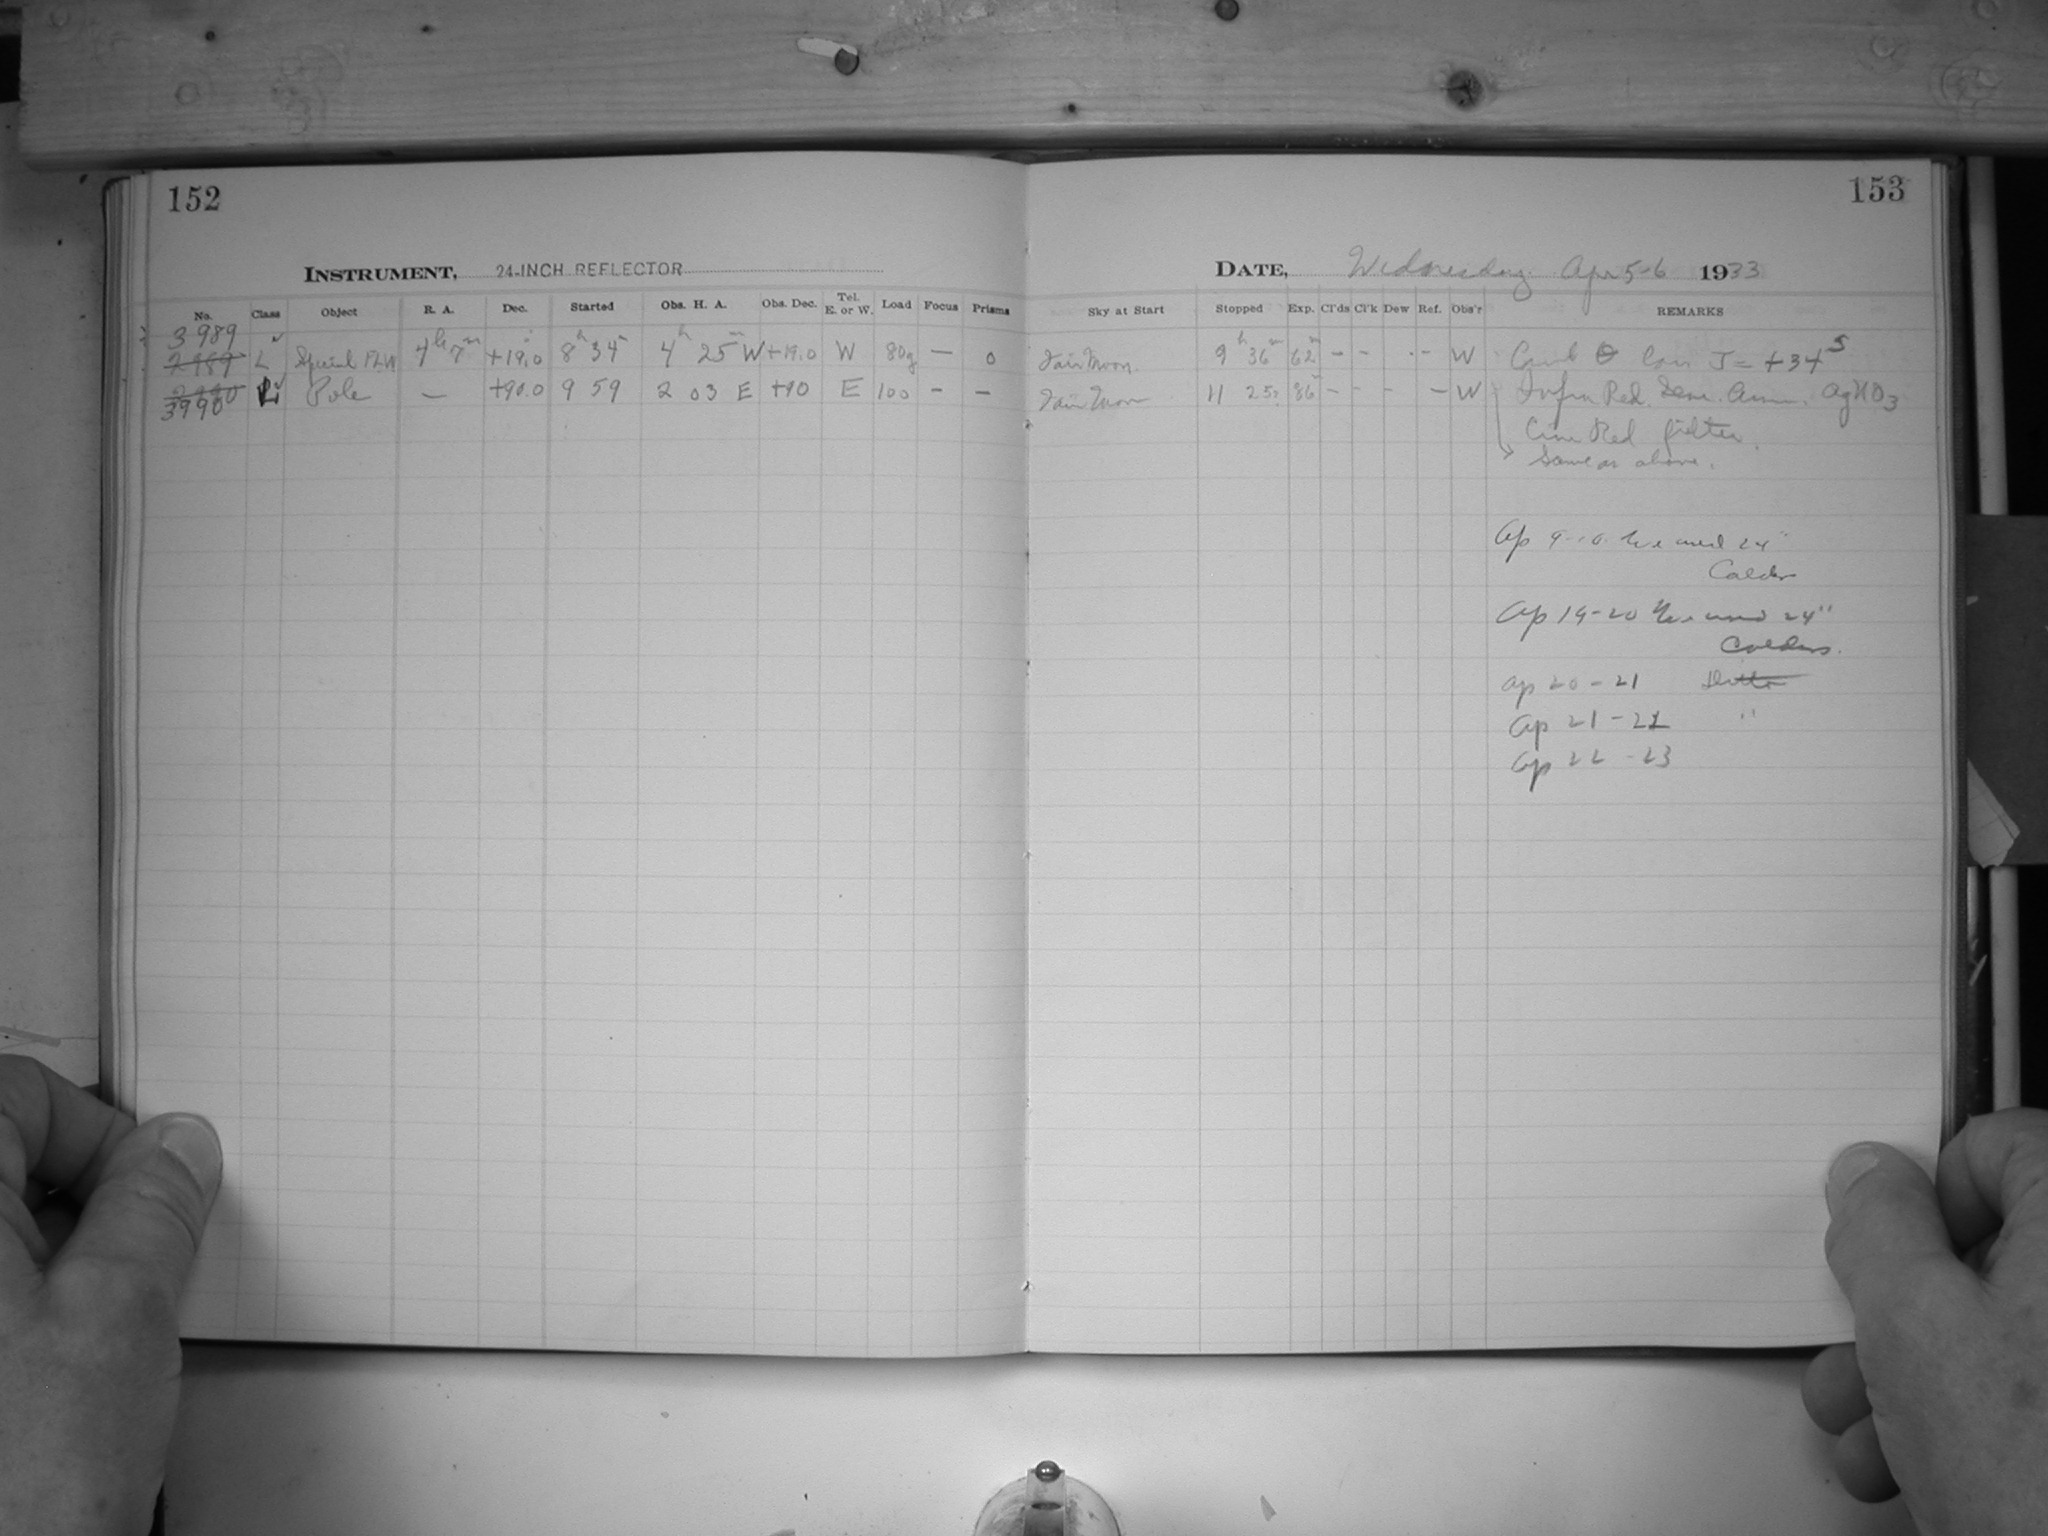 152
153
INSTRUMENT, 24-INCH REFLECTOR
DATE, Wednesday Apr 5-6 1933
No. Class Object R. A. Dec. Started Obs. H. A. Obs. Dec. Tel. E. or W. Load Focus Prisms Sky at Start Stopped Exp. Cl'ds Cl'k Dew Ref. Obs'r REMARKS
3989
L Special 4h 7m +19.0 8h 34 4h 25m W +19.0 W 80g — 0 Fair Moon 9h 36m 62m - - - - W J = +34s
Pole — +90.0 9 59 2 03 E +90 E 100 - - Fair Moon 11 25 86 - - - - W Infra Red. Amm. AgNO3
3990
Cine Red filter.
Same as above.
Ap 9-10 24"
Calder
Ap 19-20 24"
Calder
Ap 20-21 Ditto
Ap 21-22 "
Ap 22-23